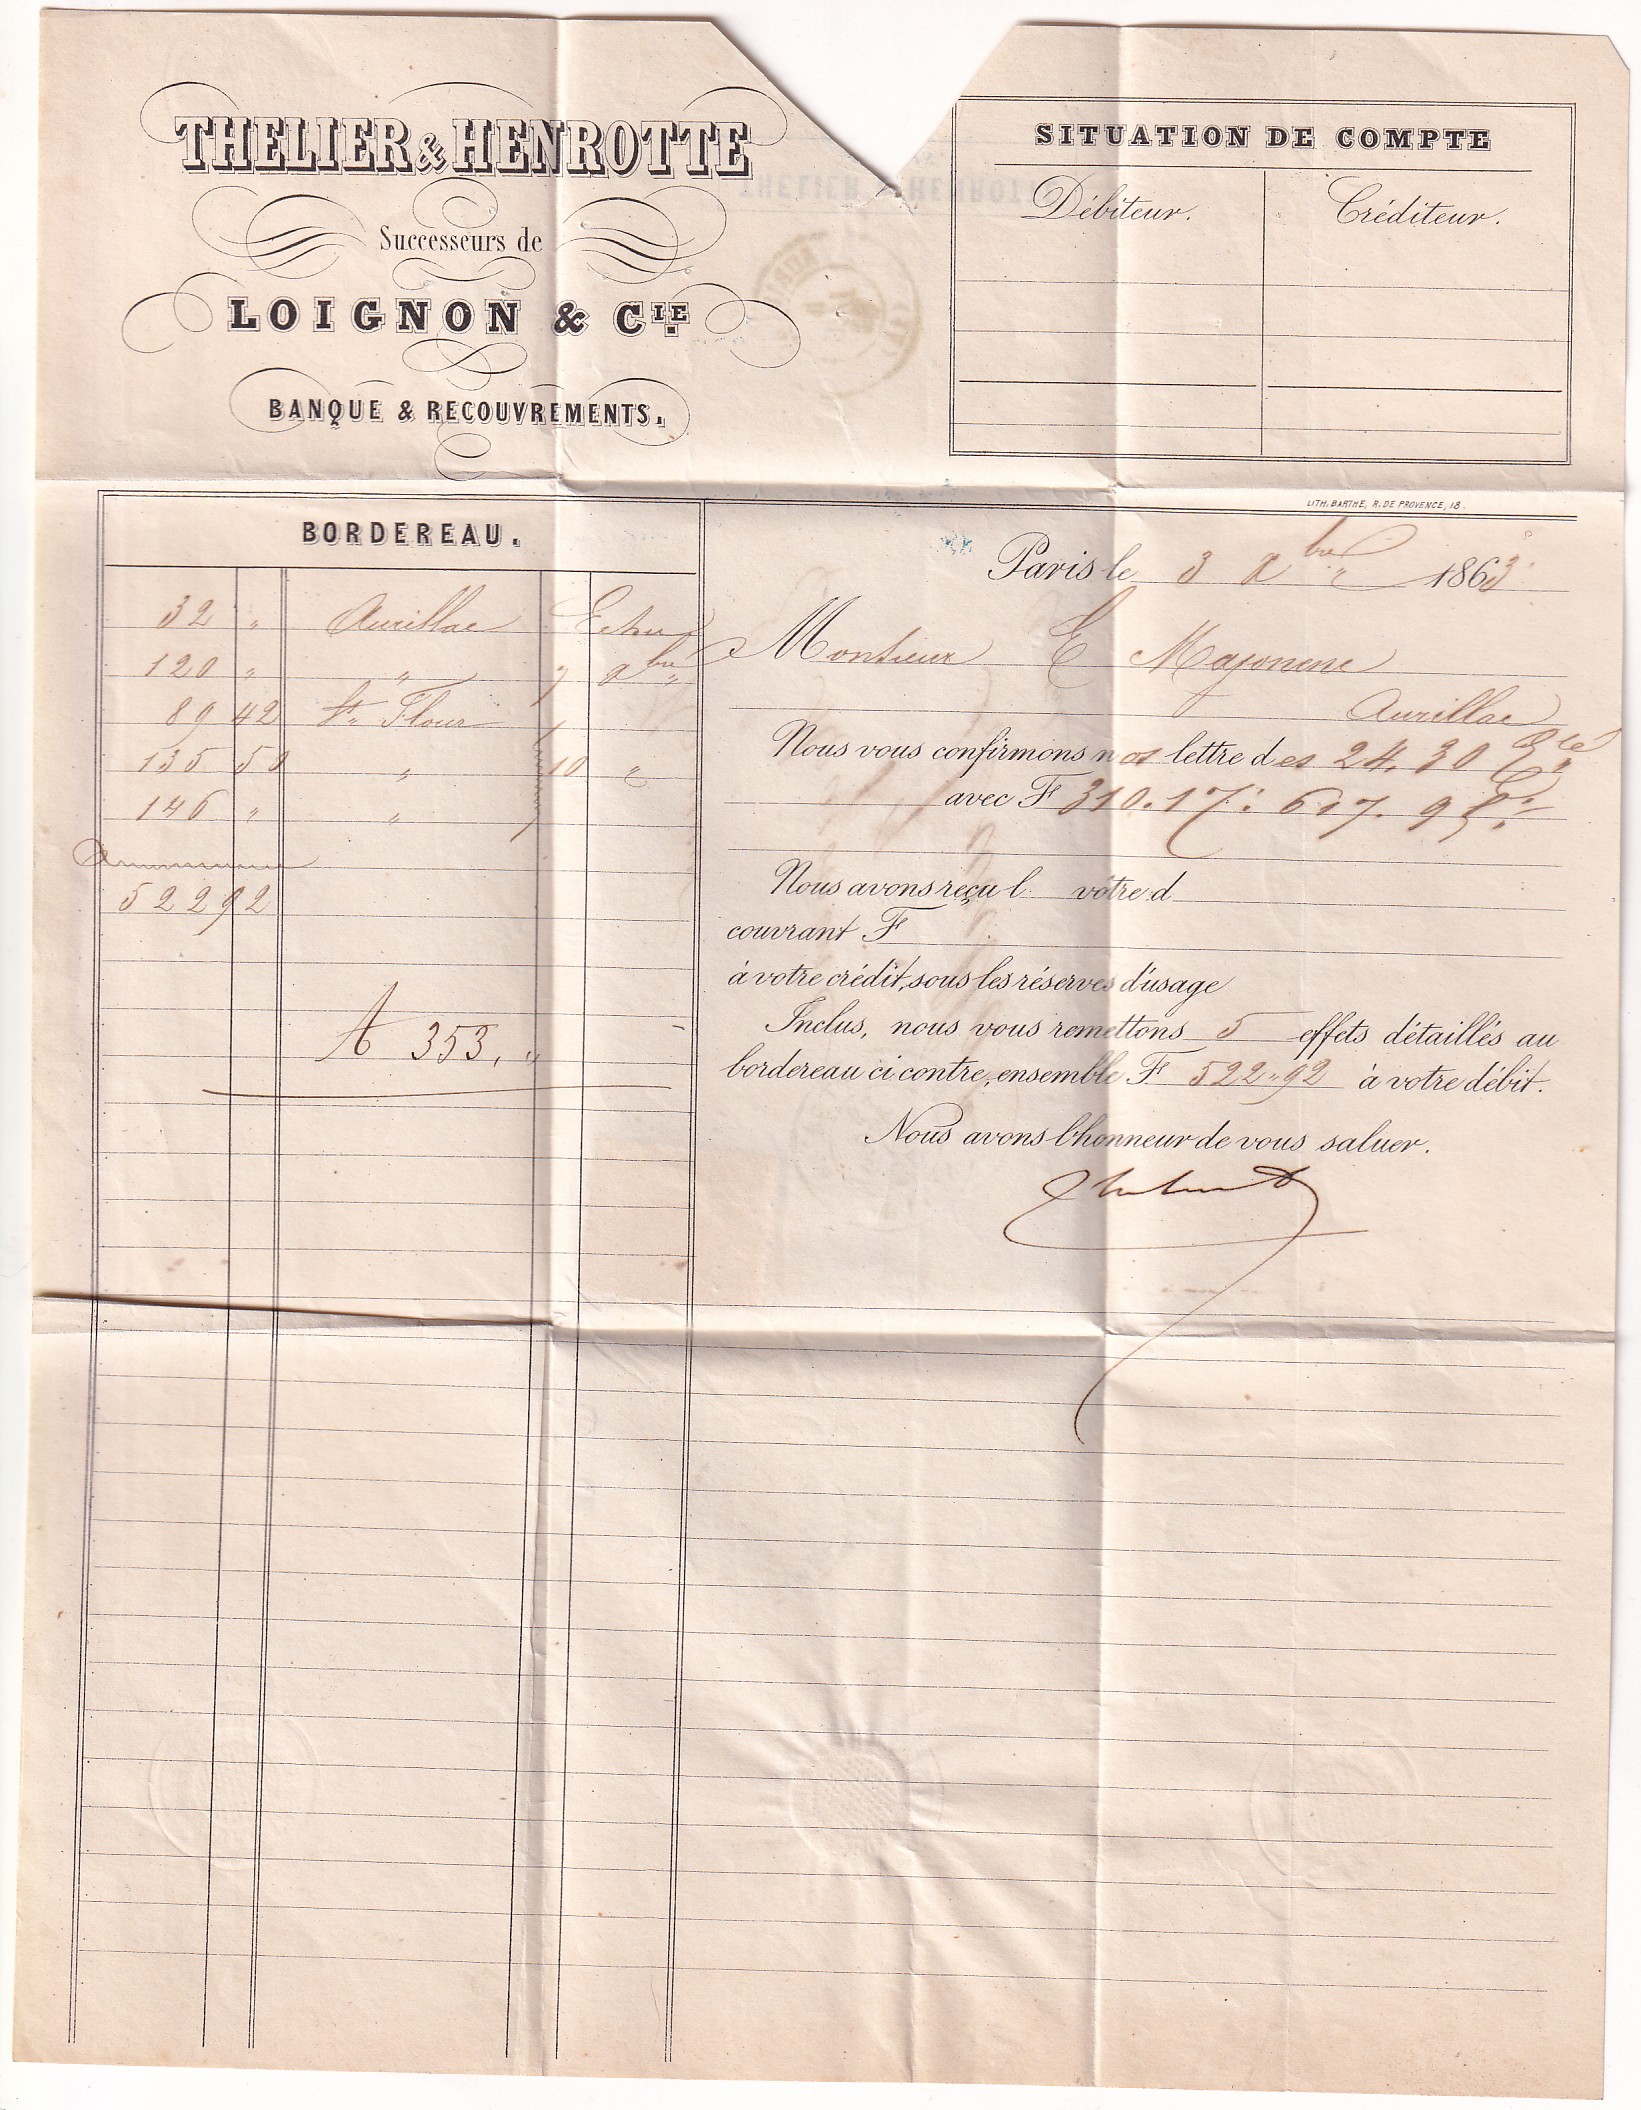 THELIER & HENROTTE
Successeurs de
LOIGNON & CIE.
BANQUE & RECOUVREMENTS.
SITUATION DE COMPTE
Débiteur. Créditeur.
LITH. BARTHE, R. DE PROVENCE, 18.
BORDEREAU.
32 " Aurillac Echu
120 " " 7 xbre
89 42 St Flour
135 50 " 10 "
146 " "
522 92
A 353, "
Paris le 3 Xbre 1863
Monsieur E
Aurillac
Nous vous confirmons nos lettre des 24. 30
avec F 310.17: 617. 95
Nous avons reçu l votre d
couvrant F
à votre crédit, sous les réserves d'usage
Inclus, nous vous remettons 5 effets détaillés au
bordereau ci contre, ensemble F 522.92 à votre débit.
Nous avons l'honneur de vous saluer.